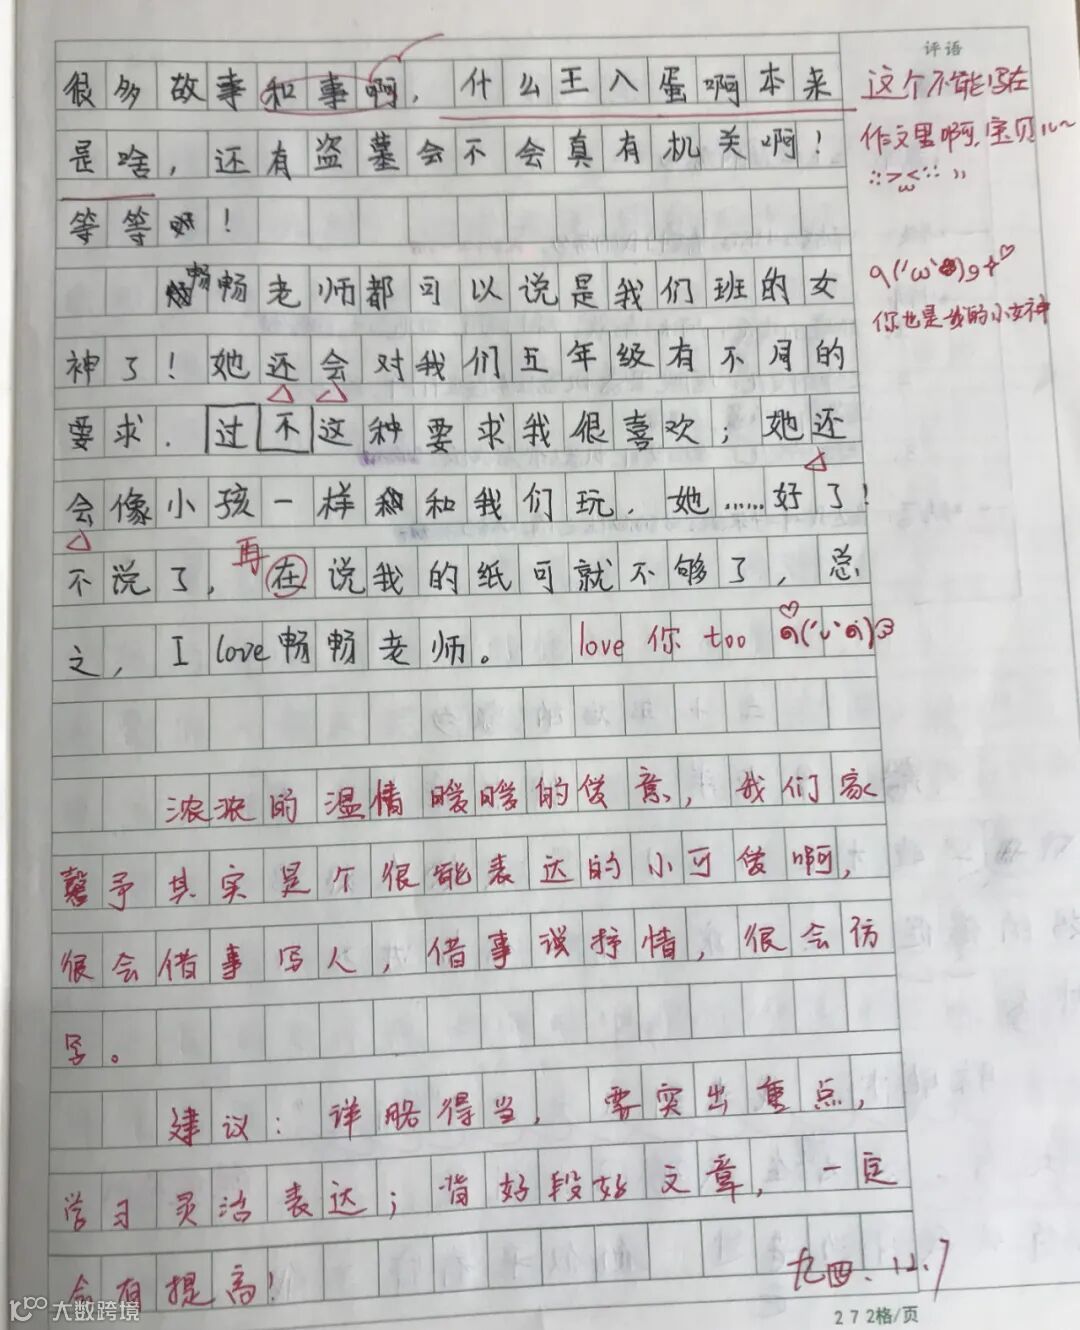 评语
很多故事和事啊，什么王八蛋啊本来
这个不能写在
是啥，还有盗墓会不会真有机关啊！
作文里啊，宝贝儿~
等等！
畅畅老师都可以说是我们班的女
你也是我的小女神
神了！她还会对我们五年级有不同的
要求．过不这种要求我很喜欢；她还
会像小孩一样和我们玩．她……好了！
不说了，再在说我的纸可就不够了，总
之，I love畅畅老师。 love 你 too
浓浓的温情暖暖的爱意，我们家
予其实是个很能表达的小可爱啊，
很会借事写人，借事说抒情，很会仿
写。
建议：详略得当，要突出重点，
学习灵活表达；背好段好文章，一定
会有提高！
12.7
272格/页
大数跨境